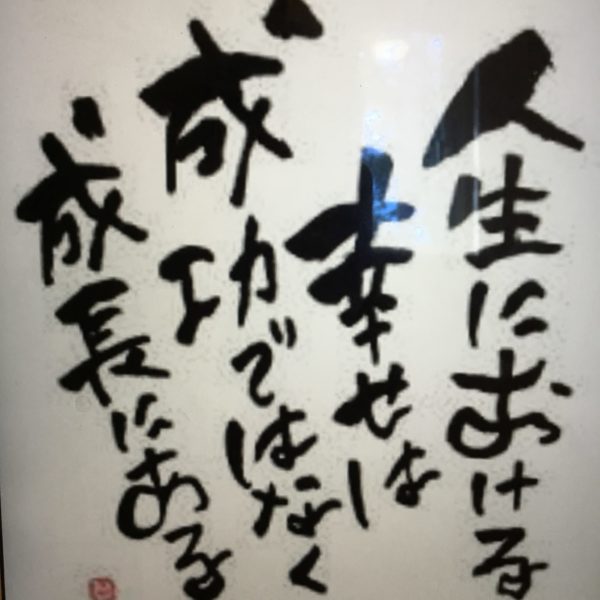 人生における
幸せは
成功ではなく
成長にある